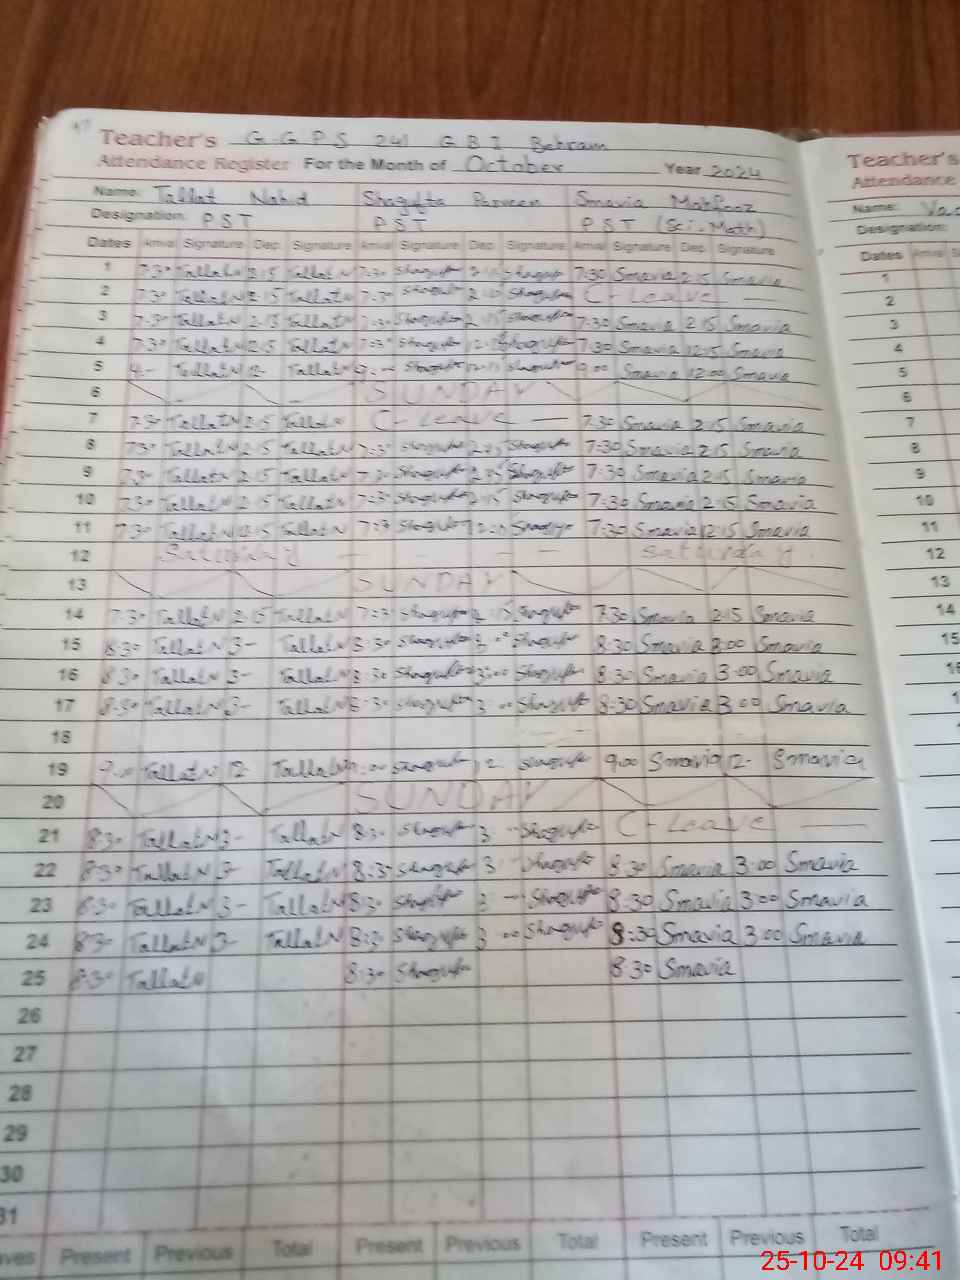 Teacher's G.G.P.S 241 GBI Behram
Attendance Register For the Month of October Year 2024
Name: Tallat Nahid Shagufta Parveen Smavia Mahfooz
Designation: PST PST PST (Sci-Math)
Dates Arrival Signature Dep. Signature Arrival Signature Dep. Signature Arrival Signature Dep. Signature
1 7:30 TallatN 2:15 TallatN 7:30 Shagufta Shagufta 7:30 Smavia 2:15 Smavia
2 7:30 TallatN 2:15 TallatN 7:30 Shagufta Shagufta C-Leave
3 7:30 TallatN 2:15 TallatN 7:30 Shagufta 2:15 Shagufta 7:30 Smavia 2:15 Smavia
4 7:30 TallatN 12:15 TallatN 7:30 Shagufta 12:15 Shagufta 7:30 Smavia 12:15 Smavia
5 TallatN 12- TallatN Shagufta Shagufta 9:00 Smavia 12:00 Smavia
6 SUNDAY
7 7:30 TallatN 2:15 TallatN C-Leave 7:30 Smavia 2:15 Smavia
8 7:30 TallatN 2:15 TallatN 7:30 Shagufta 2:15 Shagufta 7:30 Smavia 2:15 Smavia
9 7:30 TallatN 2:15 TallatN 7:30 Shagufta 2:15 Shagufta 7:30 Smavia 2:15 Smavia
10 7:30 TallatN 2:15 TallatN 7:30 Shagufta 2:15 Shagufta 7:30 Smavia 2:15 Smavia
11 7:30 TallatN 12:15 TallatN 7:30 Shagufta Shagufta 7:30 Smavia 12:15 Smavia
12 Saturday Saturday
13 SUNDAY
14 7:30 TallatN 2:15 TallatN 7:30 Shagufta 2:15 Shagufta 7:30 Smavia 2:15 Smavia
15 8:30 TallatN 3- TallatN 8:30 Shagufta 3:00 Shagufta 8:30 Smavia 3:00 Smavia
16 8:30 TallatN 3- TallatN 8:30 Shagufta 3:00 Shagufta 8:30 Smavia 3:00 Smavia
17 8:30 TallatN 3- TallatN 8:30 Shagufta 3:00 Shagufta 8:30 Smavia 3:00 Smavia
18
19 9:00 TallatN 12 TallatN Shagufta 12 Shagufta 9:00 Smavia 12- Smavia
20 SUNDAY
21 8:30 TallatN 3- TallatN 8:30 Shagufta 3 Shagufta C-Leave
22 8:30 TallatN 3- TallatN 8:30 Shagufta 3 Shagufta 8:30 Smavia 3:00 Smavia
23 8:30 TallatN 3- TallatN 8:30 Shagufta 3 Shagufta 8:30 Smavia 3:00 Smavia
24 8:30 TallatN 3- TallatN 8:30 Shagufta 3:00 Shagufta 8:30 Smavia 3:00 Smavia
25 8:30 TallatN 8:30 Shagufta 8:30 Smavia
26
27
28
29
30
31
Present Previous Total Present Previous Total Present Previous Total
Teacher's
Attendance
Name:
Designation:
Dates
1
2
3
4
5
6
7
8
9
10
11
12
13
14
15
25-10-24 09:41